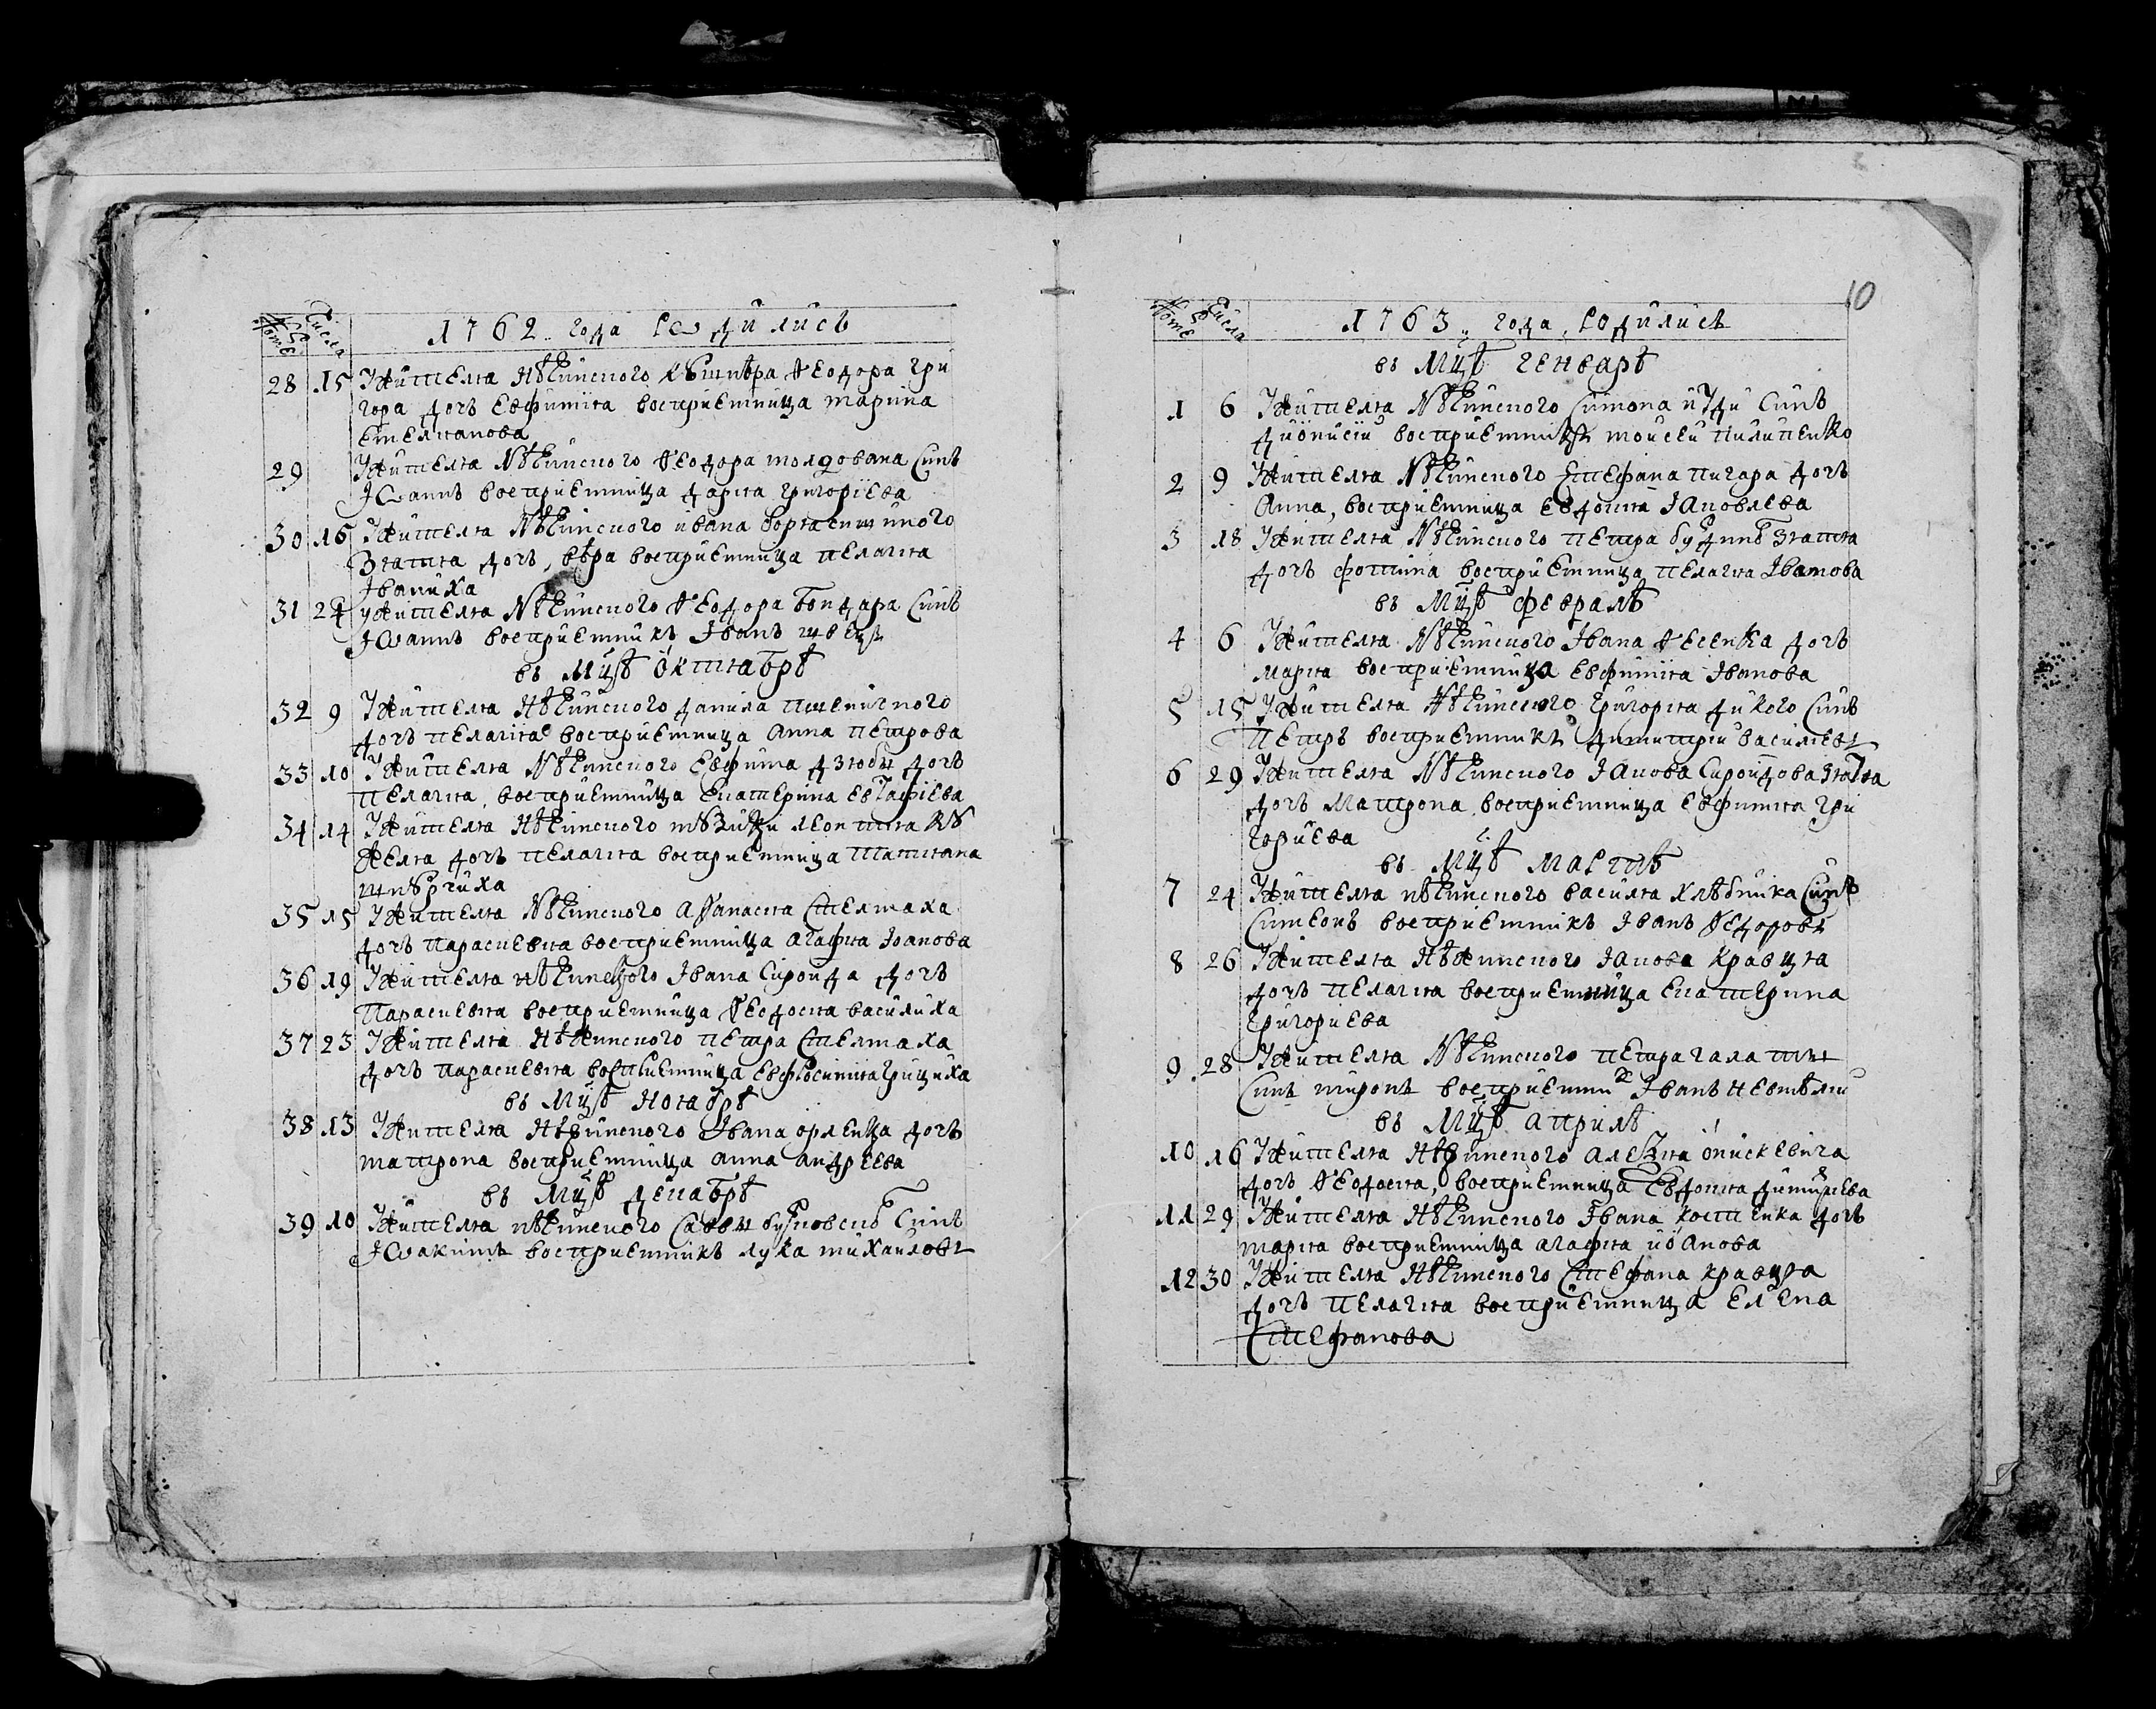 Номе Числа 1762. года родились
28 15 Жителя нѣжинского кушнѣра Ѳеодора гри
гора дочь Евфимія восприемница марина
Емелианова
29 Жителя Нѣжинского Ѳеодора молдована Синъ
Іѡаннъ восприемница дария григоріева
30 16 Жителя Нѣжинского ивана
Зятя дочь, вѣра восприемница пелагия
Иваниха
31 24 Жителя Нѣжинского Ѳеодора бондара Синъ
Іѡаннъ восприемникъ Іванъ швецъ
въ Мцѣ октиабрѣ
32 9 Жителя Нѣжинского данила пшеничного
дочь пелагия восприемница Анна петрова
33 10 Жителя Нѣжинского Евфима дзюбы дочь
пелагия, восприемница Екатерина Евстафіева
34 14 Жителя Нѣжинского музики леонтия ку
желя дочь пелагия восприемница Татиана
35 15 Жителя Нѣжинского Аѳанасия Стелмаха
дочь парасиевия восприемница агафия Іоанова
36 19 Жителя нѣжинского Івана Сироида дочь
Парасиевия восприемница Ѳеодосия василиха
37 23 Жителя Нѣжинского петра Стелмаха
дочь парасиевия восприемница евфросиния грициха
въ Мцѣ Ноіабрѣ
38 13 Жителя Нѣжинского Івана орленца дочь
матрона восприемница анна андреева
въ Мцѣ декабрѣ
39 10 Жителя нѣжинского Саввы Синъ
Іѡакимъ восприемникъ лука михайловъ
10
Номе Числа 1763. года, родились
въ Мцѣ генварѣ
1 6 Жителя Нѣжинского Симона Синъ
Дионисій восприемникъ моисей пилипенко
2 9 Жителя Нѣжинского Стефана пигара дочь
Анна, восприемница Евдокия Іаковлева
3 18 Жителя Нѣжинского петра зятя
дочь фотина восприемница пелагия Іванова
въ Мцѣ февралѣ
4 6 Жителя Нѣжинского Івана Ѳесенка дочь
мария восприемница евфимия Іванова
5 15 Жителя Нѣжинского григория дикого Синъ
Петръ восприемникъ димитрий василевъ
6 29 Жителя Нѣжинского Іакова Сироидова зятя
дочь Матрона восприемница евфимия гри
гориева
въ Мцѣ мартѣ
7 24 Жителя нѣжинского василия хлѣбника Синъ
Симеонъ восприемникъ Іванъ Ѳедоровъ
8 26 Жителя Нѣжинского Іакова кравця
дочь пелагия восприемница екатерина
григориева
9 28 Жителя Нѣжинского петра галати
Синъ миронъ восприемникъ Іванъ
въ Мцѣ априлѣ
10 16 Жителя Нѣжинского алеѯия
дочь Ѳеодосия, восприемница Евдокия димитриева
11 29 Жителя Нѣжинского Івана костенка дочь
мария восприемница агафия иоанова
12 30 Жителя Нѣжинского Стефана кравця
дочь пелагия восприемница елена
Стефанова